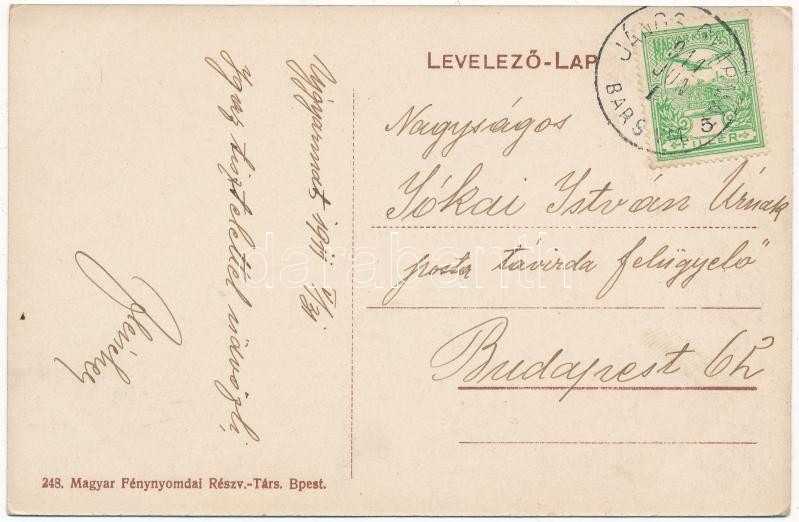 LEVELEZŐ-LAP
MAGYAR KIR. POSTA
JÁNOS
911
JUN
1
BARS M.
5
FILLÉR
Nagyságos
Jókai István Úrnak
posta távirda felügyelő
Budapest 62
1911 V/31
Igaz tisztelettel üdvözli
248. Magyar Fénynyomdai Részv.-Társ. Bpest.
darabanth